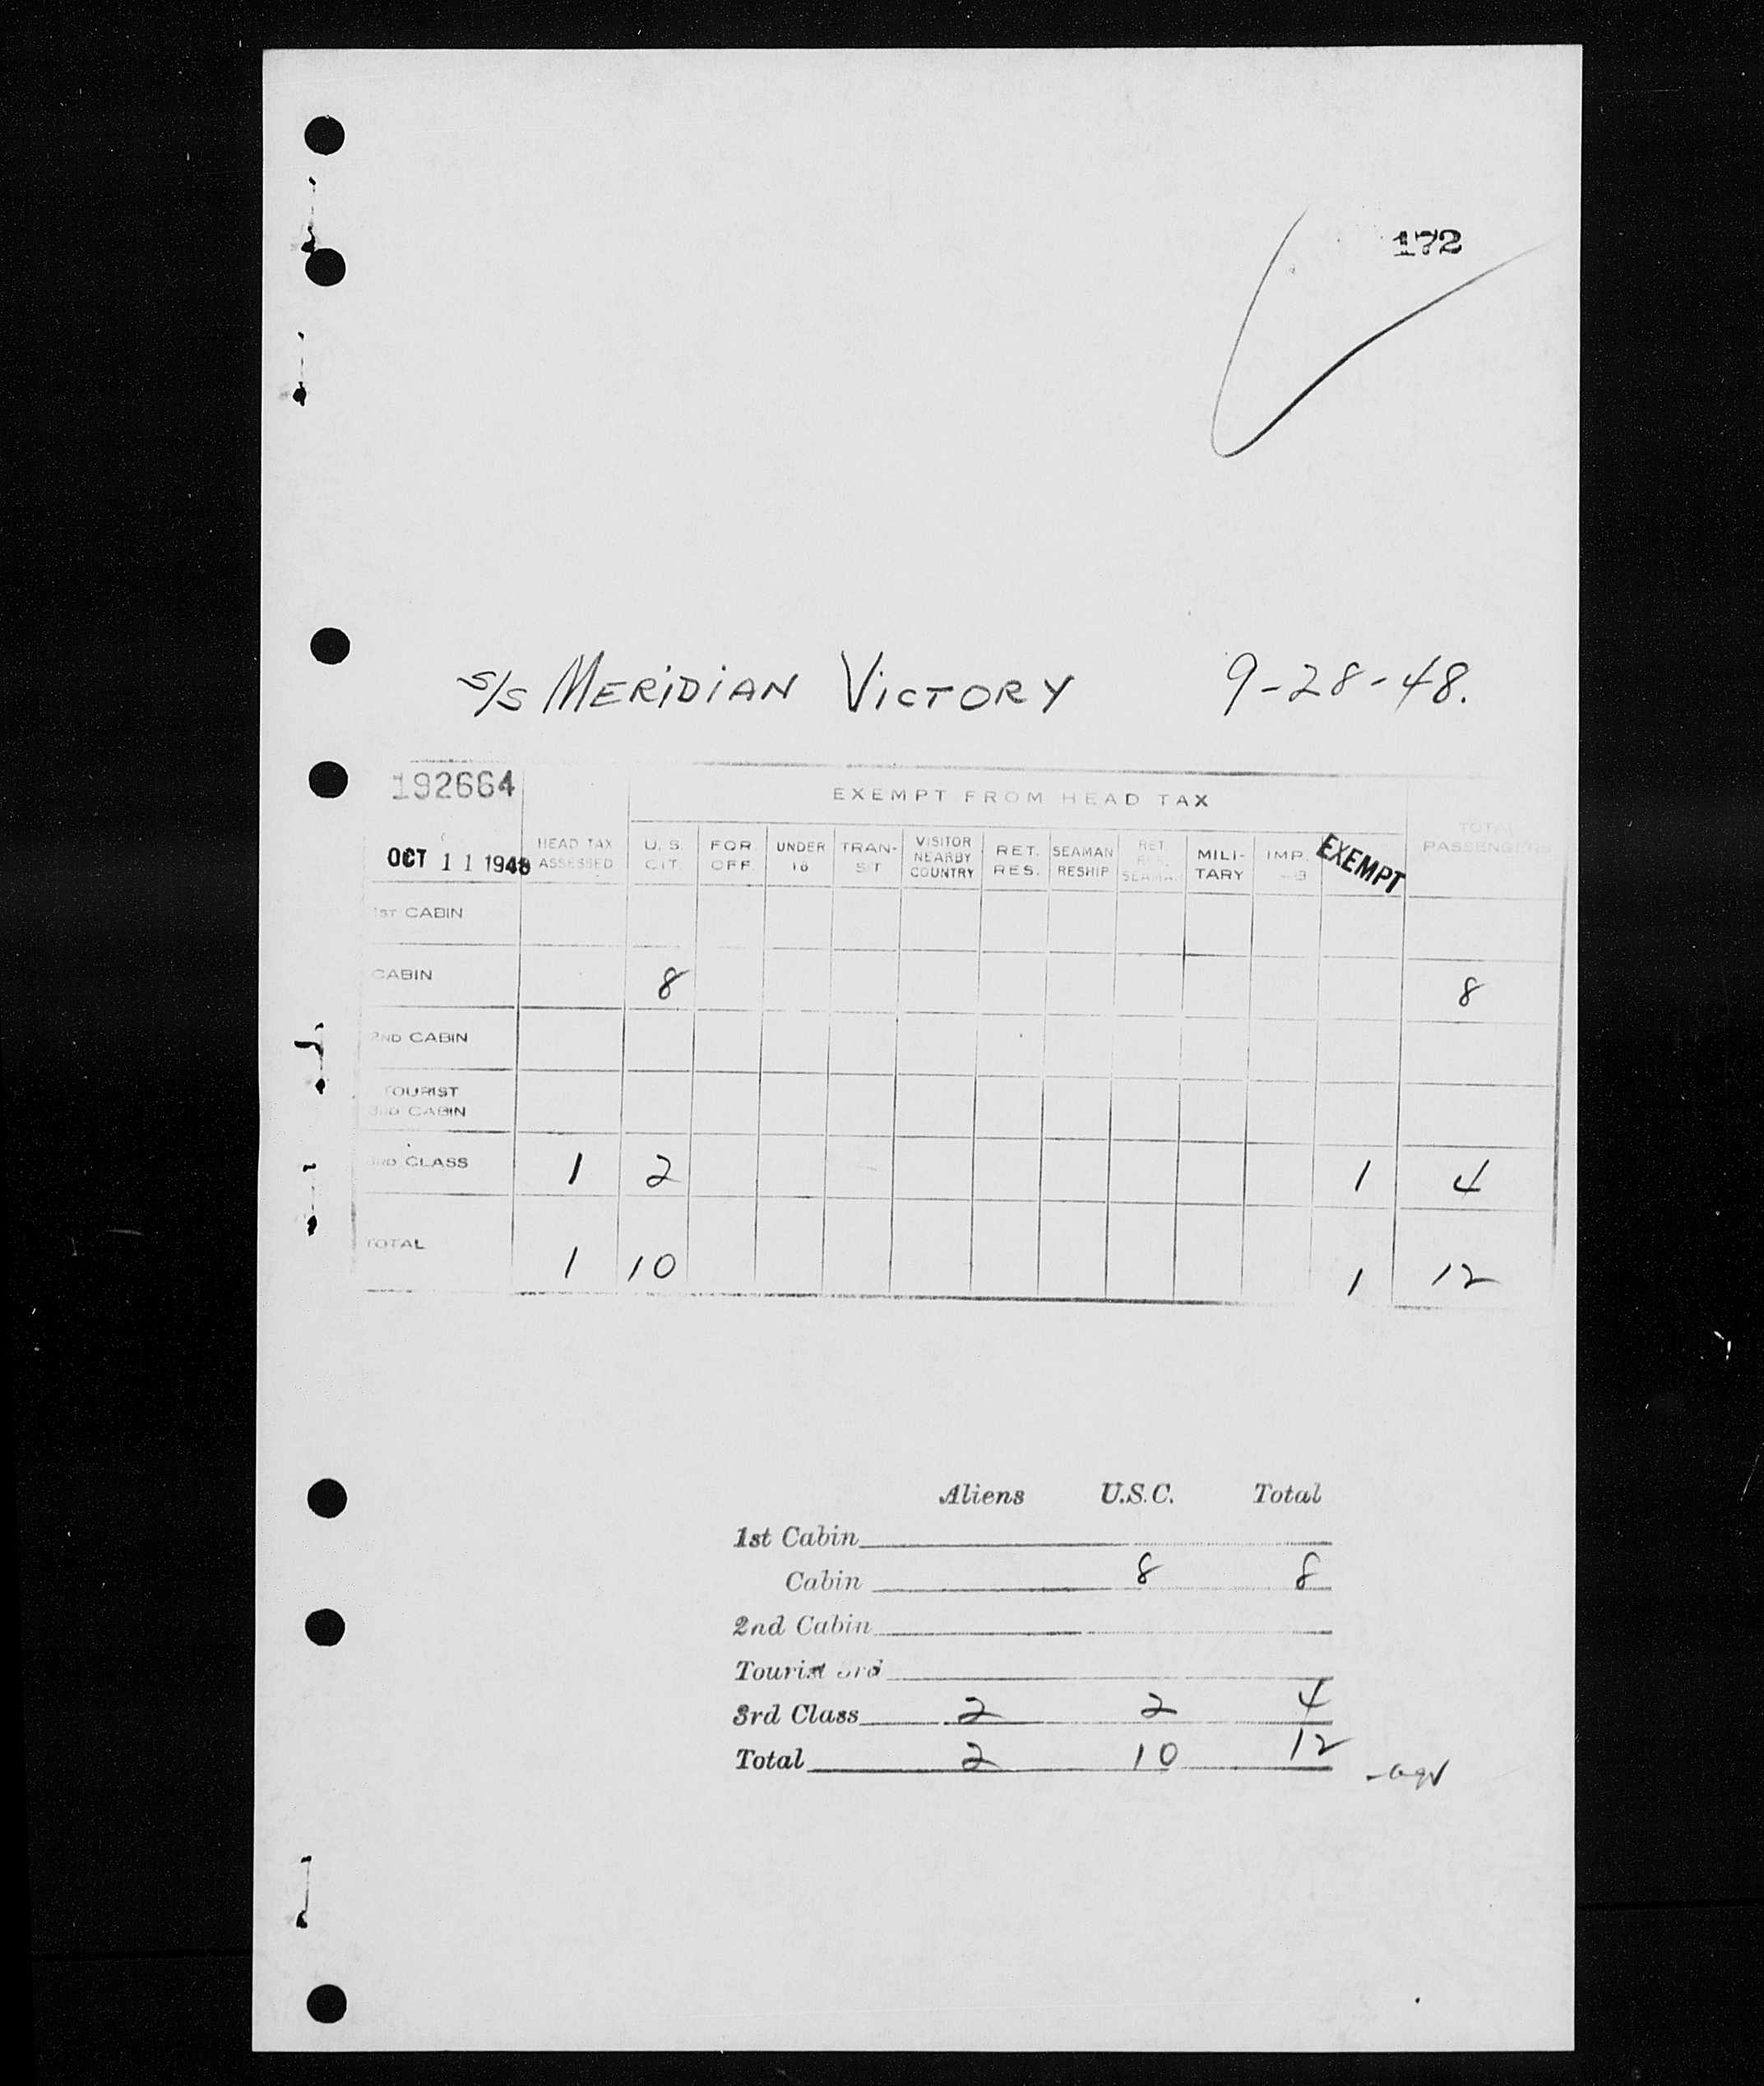 172
s/s MERiDiAN VicTORY 9-28-48.
192664
EXEMPT FROM HEAD TAX
OCT 11 1948 HEAD TAX ASSESSED U. S. CIT. FOR. OFF. UNDER 16 TRAN-SIT VISITOR NEARBY COUNTRY RET. RES. SEAMAN RESHIP RET. SEAMAN MILI-TARY IMP. EXEMPT TOTAL PASSENGERS
1ST CABIN
CABIN 8 8
2ND CABIN
TOURIST
3RD CABIN
3RD CLASS 1 2 1 4
TOTAL 1 10 1 12
Aliens U.S.C. Total
1st Cabin
Cabin 8 8
2nd Cabin
Tourist 3rd
3rd Class 2 2 4
Total 2 10 12